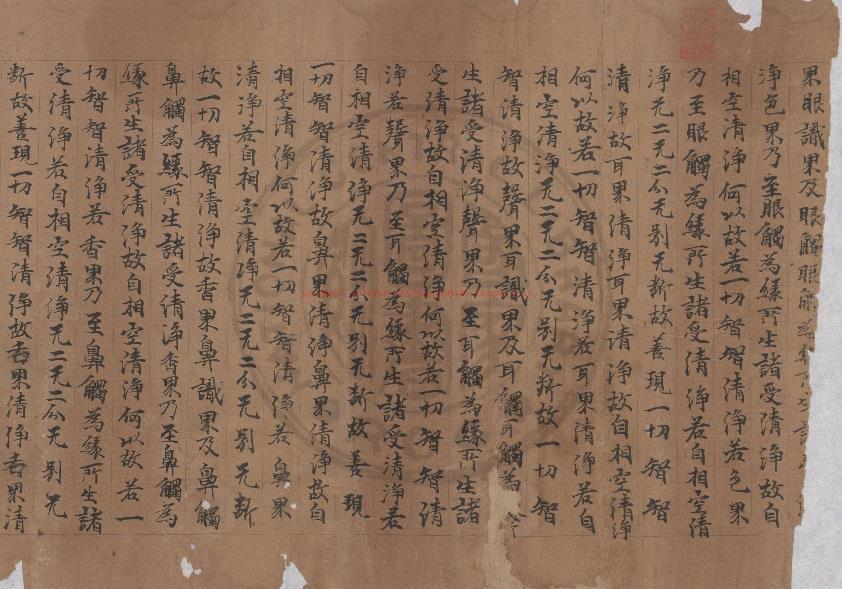 界眼識界及眼觸眼觸為
淨色界乃至眼觸為緣所生諸受清淨故自
相空清淨何以故若一切智智清淨若色界
乃至眼觸為緣所生諸受清淨若自相空清
淨无二无二分无別无断故善現一切智智
清淨故耳界清淨耳界清淨故自相空清淨
何以故若一切智智清淨若耳界清淨若自
相空清淨无二无二分无別无断故一切智
智清淨故聲界耳識界及耳觸耳觸為
生諸受清淨聲界乃至耳觸為緣所生諸
受清淨故自相空清淨何以故若一切智智清
淨若聲界乃至耳觸為緣所生諸受清淨若
自相空清淨无二无二分无別无断故善現
一切智智清淨故鼻界清淨鼻界清淨故自
相空清淨何以故若一切智智清淨若鼻界
清淨若自相空清淨无二无二分无別无断
故一切智智清淨故香界鼻識界及鼻觸
鼻觸為緣所生諸受清淨香界乃至鼻觸為
緣所生諸受清淨故自相空清淨何以故若一
切智智清淨若香界乃至鼻觸為緣所生諸
受清淨若自相空清淨无二无二分无別无
断故善現一切智智清淨故舌界清淨舌界清